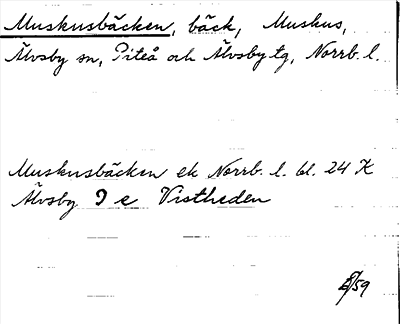 Muskusbäcken, bäck, Muskus,
Älvsby sn, Piteå och Älvsby tg, Norrb. l.
Muskusbäcken ek Norrb. l. bl. 24 K
Älvsby 9 e Vistheden
/59